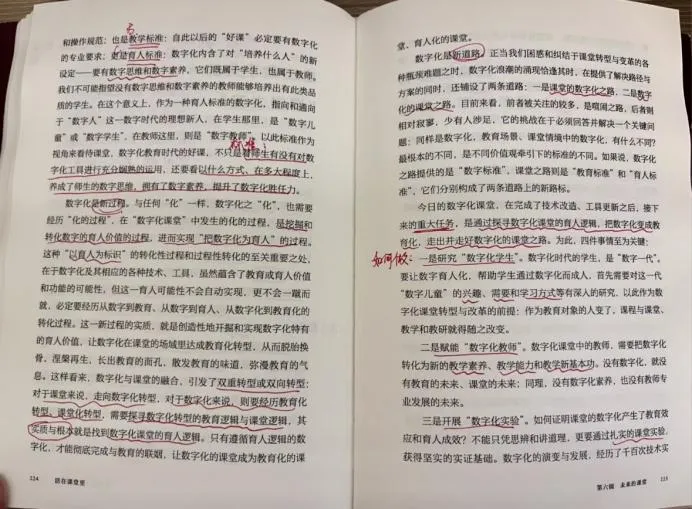 和操作规范；也是教学标准：自此以后的“好课”必定要有数字化
的专业要求；更是育人标准：数字化内含了对“培养什么人”的新
设定——要有数字思维和数字素养，它们既属于学生，也属于教师。
我们不可能指望没有数字思维和数字素养的教师能够培养出有此类品
质的学生。在这个意义上，作为一种育人标准的数字化，指向和通向
于“数字人”这一数字时代的理想新人，在学生那里，是“数字儿
童”或“数字学生”，在教师这里，则是“数字教师”。以此标准作为
标准：
视角来看待课堂，数字化教育时代的好课，不只是看师生有没有对数
字化工具进行充分娴熟的运用，还要看以什么方式、在多大程度上，
养成了师生的数字思维，拥有了数字素养，提升了数字化胜任力。
数字化是新过程。与任何“化”一样，数字化之“化”，也需要
经历“化的过程”，在“数字课堂”中发生的化的过程，是挖掘和
转化数字的育人价值的过程，进而实现“把数字化为育人”的过程。
这种“以育人为标识”的转化性过程和过程性转化的至关重要之处，
在于数字化及其相应的各种技术、工具，虽然蕴含了教育或育人价值
和功能的可能性，但这一育人可能性不会自动实现，更不会一蹴而
就，必定要经历从数字到教育、从数字到育人、从数字化到教育化的
转化过程。这一新过程的实质，就是创造性地开掘和实现数字化特有
的育人价值，让数字化在课堂的场域里达成教育化转型，从而脱胎换
骨，涅槃再生，长出教育的面孔，散发教育的味道，弥漫教育的气
息。这样看来，数字化与课堂的融合，引发了双重转型或双向转型：
对于课堂来说，走向数字化转型，对于数字化来说，则要经历教育化
转型、课堂化转型，需要探寻数字化转型的教育逻辑与课堂逻辑，其
实质与根本就是找到数字化课堂的育人逻辑。只有遵循育人逻辑的数
字化，才能彻底完成与教育的联姻，让数字化的课堂成为教育化的课
224 活在课堂里
堂、育人化的课堂。
数字化是新道路。正当我们困惑和纠结于课堂转型与变革的各
种瓶颈难题之时，数字化浪潮的涌现恰逢其时，在提供了解决路径与
方案的同时，还铺设了两条道路：一是课堂的数字化之路，二是数字
化的课堂之路。目前看来，前者被关注的较多，是喧闹之路，后者则
相对寂寥，少有人涉足，它的挑战在于必须回答并解决一个关键问
题：同样是数字化，教育场景、课堂情境中的数字化，有什么不同？
最根本的不同，是不同价值观牵引下的标准的不同。如果说，数字化
之路提供的是“数字标准”，课堂之路则是“教育标准”和“育人标
准”，它们分别构成了两条道路上的新路标。
今日的数字化课堂，在完成了技术改造、工具更新之后，接下
来的重大任务，是通过探寻数字化课堂的育人逻辑，把数字化变成教
育化，走出并走好数字化的课堂之路。为此，四件事情至为关键：
如何做：
一是研究“数字化学生”。数字化时代的学生，是“数字一代”。
要让数字育人化，帮助学生通过数字化而成人，首先需要对这一代
“数字儿童”的兴趣、需要和学习方式等有深入的研究，以此作为数字
化课堂转型与改革的前提：作为教育对象的人变了，课程与课堂、
教学和教研就得随之改变。
二是赋能“数字化教师”。数字化课堂中的教师，需要把数字化
转化为新的教学素养、教学能力和教学新基本功。没有数字化，就没
有教育的未来、课堂的未来；同理，没有数字化素养，也没有教师专
业发展的未来。
三是开展“数字化实验”。如何证明课堂的数字化产生了教育效
应和育人成效？不能只凭思辨和讲道理，更要通过扎实的课堂实验，
获得坚实的实证基础。数字化的演变与发展，经历了千百次技术实
第六辑 未来的课堂 225